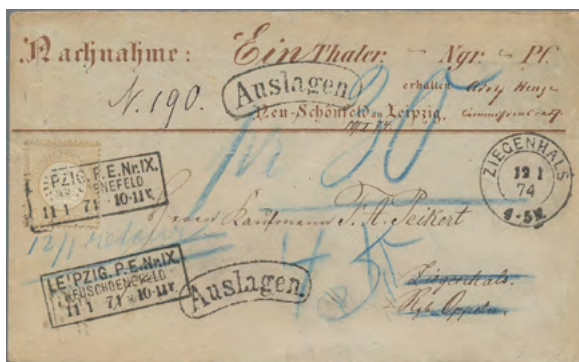 Nachnahme: Ein Thaler - Ngr. - Pf.
erhalten
N. 190.
Auslagen.
Neu-Schönfeld bei Leipzig,
20
ZIEGENHALS
12 1
74
4-5N.
LEIPZIG. P.E.Nr.IX.
NEUSCHOENEFELD
11 1 74 10-11V.
Herrn Kaufmann F. A. Peikert
12/1 retour
LEIPZIG. P.E.Nr.IX.
NEUSCHOENEFELD
11 1 74 10-11V.
Auslagen.
Ziegenhals.
Rgb. Oppeln.